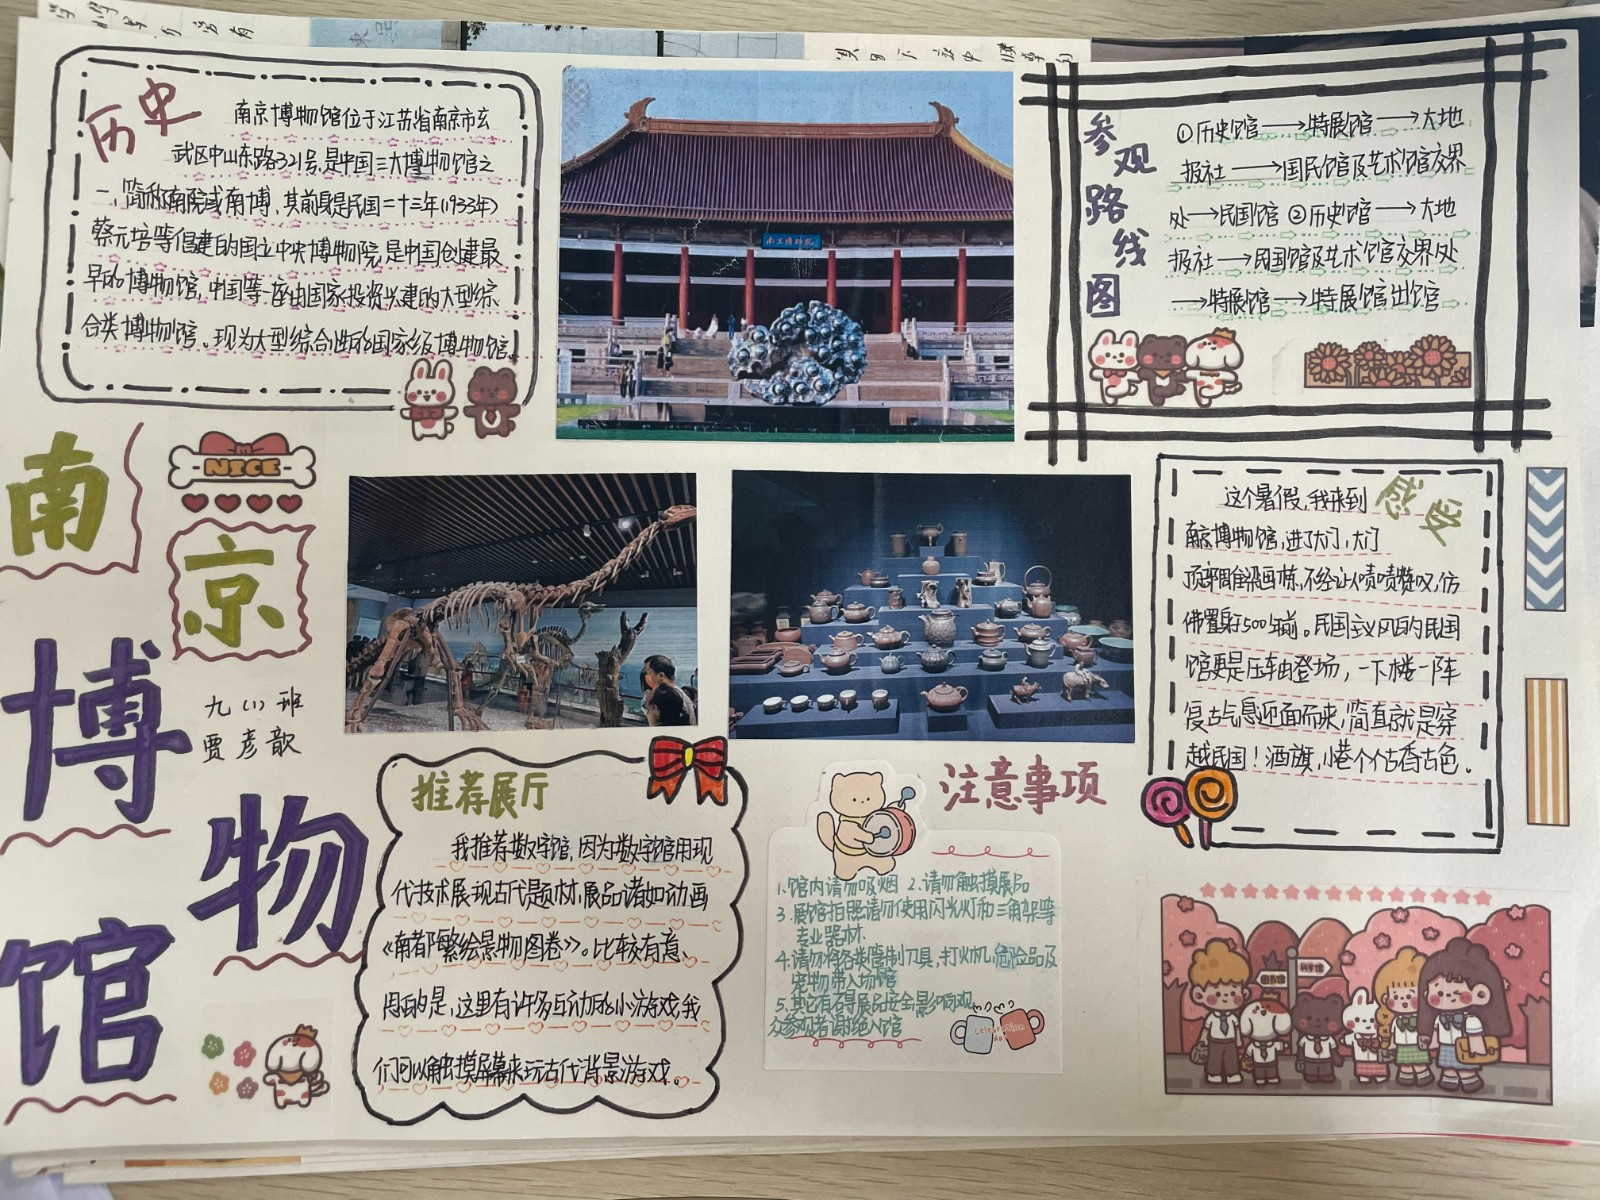 历史
南京博物馆位于江苏省南京市玄
武区中山东路321号,是中国三大博物馆之
一,简称南院或南博,其前身是民国二十三年(1933年)
蔡元培等倡建的国立中央博物院,是中国创建最
早的博物馆,中国第一座由国家投资兴建的大型综
合类博物馆。现为大型综合性的国家级博物馆。
南京博物院
参观路线图
①历史馆→特展馆→大地
报社→国民馆及艺术馆交界
处→民国馆②历史馆→大地
报社→民国馆及艺术馆交界处
→特展馆→特展馆出馆
南
NICE
京
博
物
馆
九(1)班
贾彦歆
感受
这个暑假,我来到
南京博物馆,进了大门,大门
顶部雕
画栋,不经让人啧啧赞叹,仿
佛置身于500年前。民国主义风的民国
馆更是压轴登场,一下楼一阵
复古气息迎面而来,简直就是穿
越民国!酒旗,小巷个个古香古色。
推荐展厅
我推荐数字馆,因为数字馆用现
代技术展现古代题材,展品诸如动画
《南都繁绘景物图卷》。比较有意
思的是,这里有许多互动的小游戏,我
们可以触摸屏幕来玩古代背景游戏。
注意事项
1.馆内请勿吸烟 2.请勿触摸展品
3.展馆拍照请勿使用闪光灯和三角架等
专业器材.
4.请勿将各类管制刀具,打火机,危险品及
宠物带入场馆
5.其它有碍展品安全,影响观
众参观者谢绝入馆